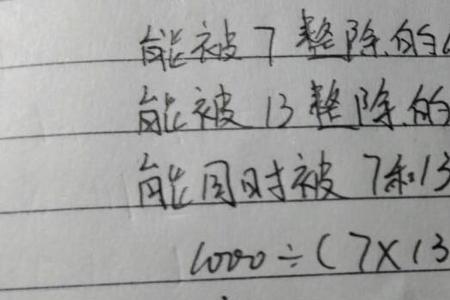 能被7整除的
能被13整除的
能同时被7和13
1000÷(7×13